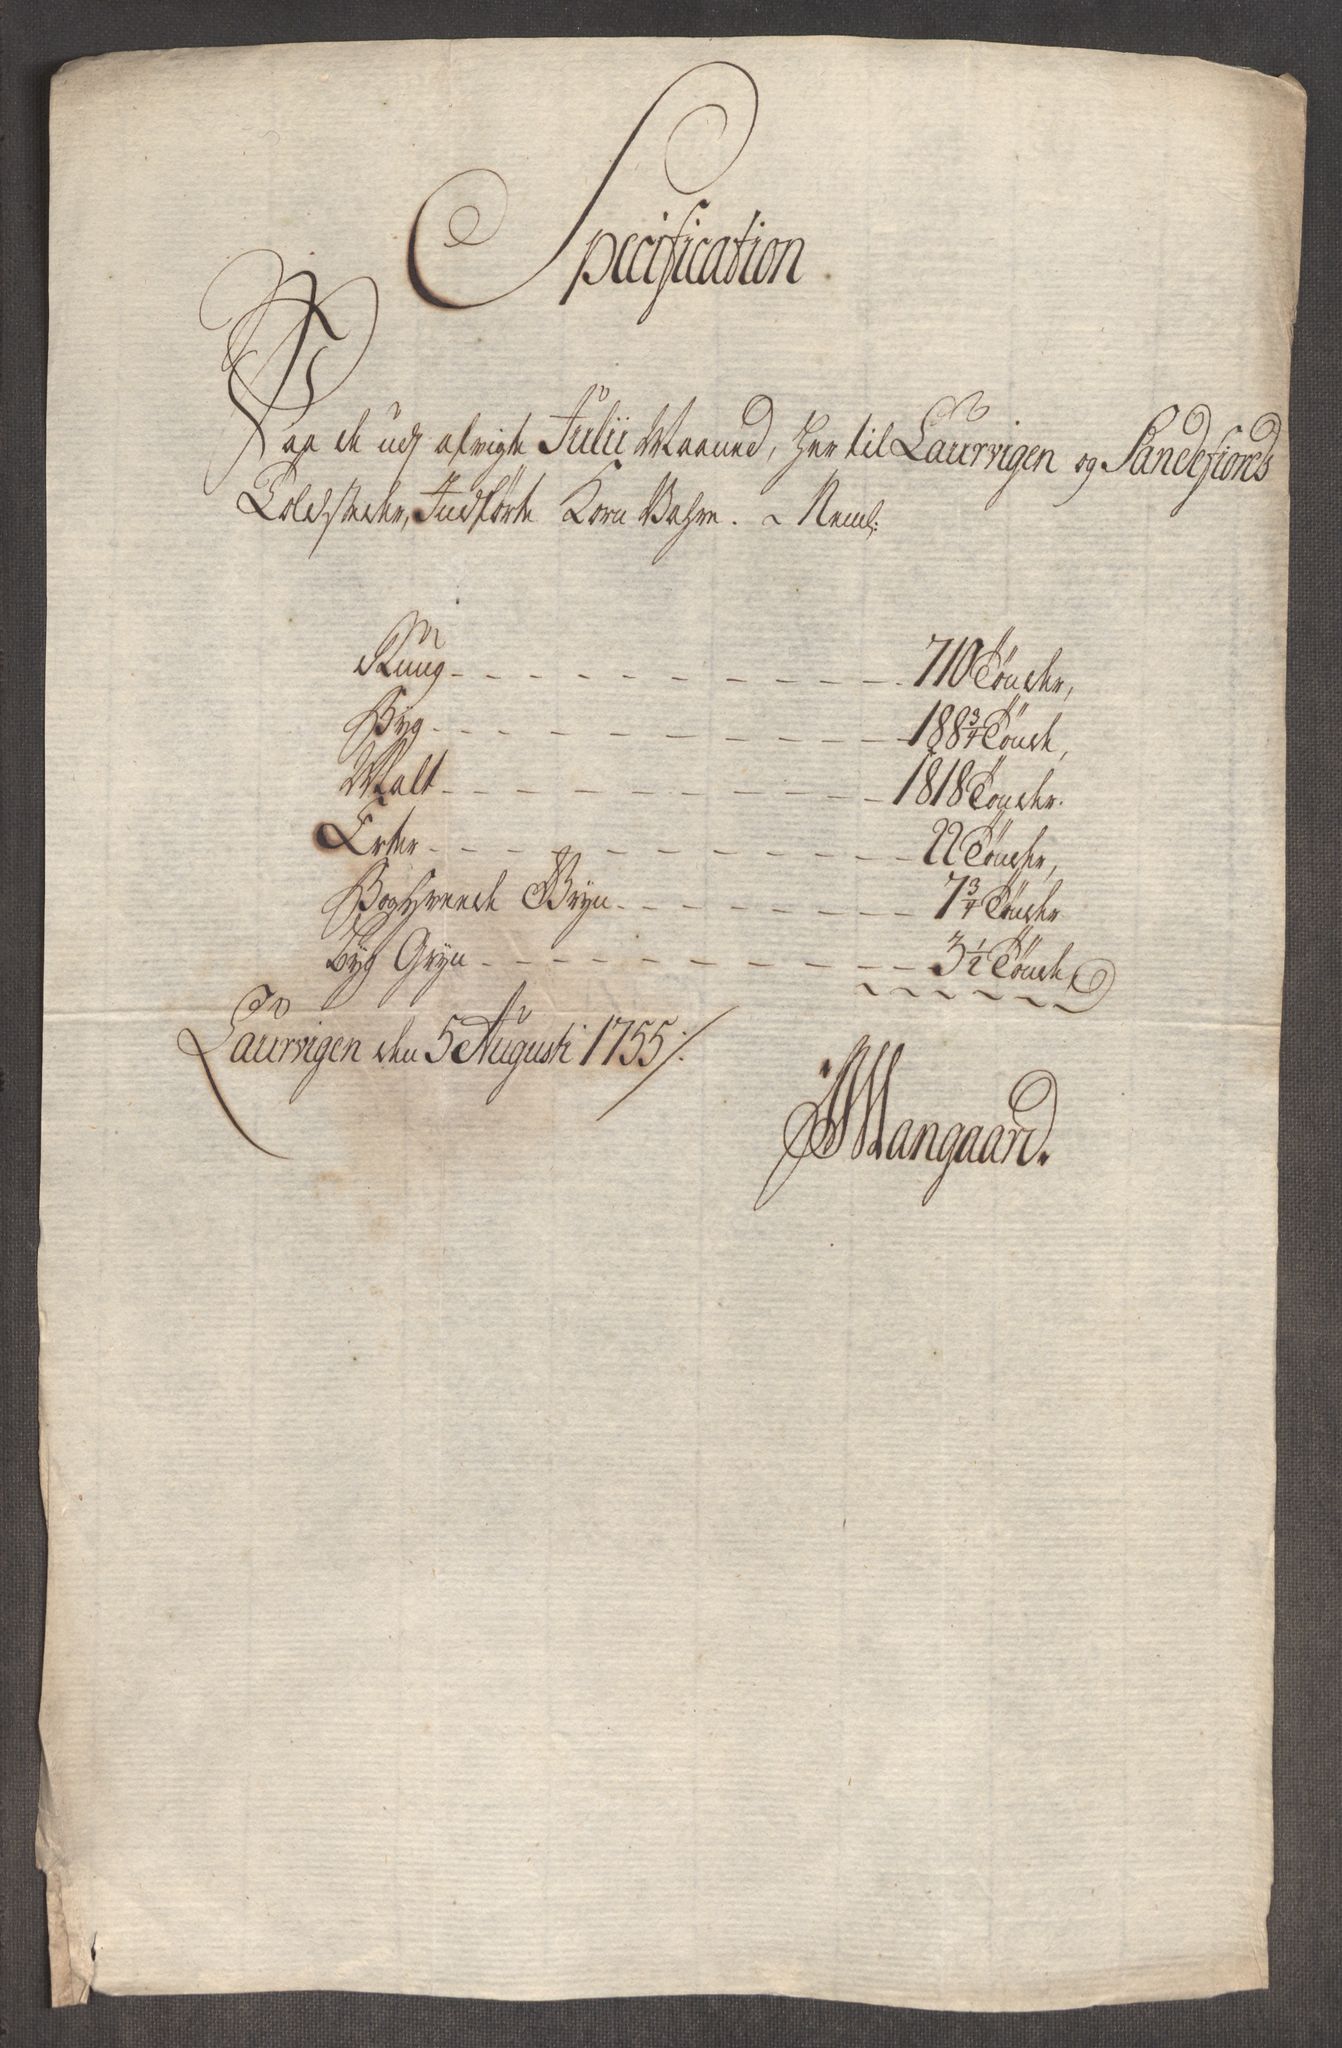 Specification
Paa de udj afvigte Julii Maaned, her til Laurvigen og Sandefiords
Toldsteder, Indførte Korn Vahre. Neml:
Rung - - - 710 Tønder,
Byg - - - 188 3/4 Tønde,
Malt - - - 1818 Tønder.
Erter - - - 22 Tønder,
Boghvede Gryn - - - 7 3/4 Tønder
Byg Gryn - - - 3 1/2 Tønde,
Laurvigen den 5 Augusti 1755 /:
Mangaard.